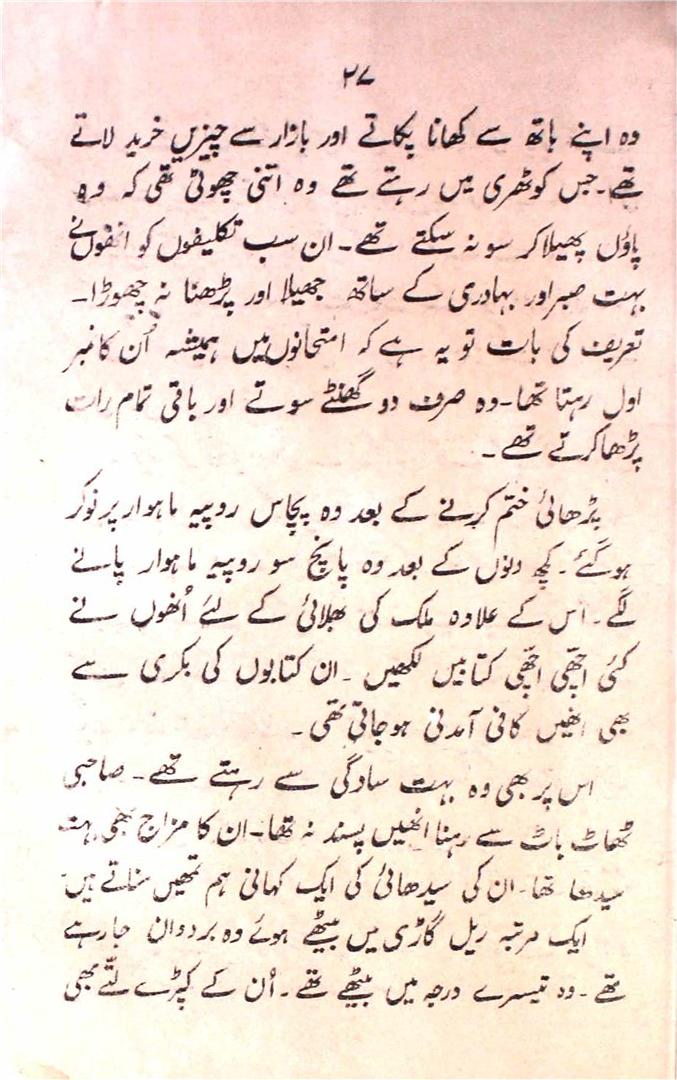 ۲۷
وہ اپنے ہاتھ سے کھانا پکاتے اور بازار سے چیزیں خرید لاتے
تھے۔ جس کوٹھری میں رہتے تھے وہ اتنی چھوٹی تھی کہ وہ
پاؤں پھیلا کر سو نہ سکتے تھے۔ ان سب تکلیفوں کو انھوں نے
بہت صبر اور بہادری کے ساتھ جھیلا اور پڑھنا نہ چھوڑا۔
تعریف کی بات تو یہ ہے کہ امتحانوں میں ہمیشہ اُن کا نمبر
اول رہتا تھا۔ وہ صرف دو گھنٹے سوتے اور باقی تمام رات
پڑھا کرتے تھے۔
پڑھائی ختم کرنے کے بعد وہ پچاس روپیہ ماہوار پر نوکر
ہو گئے۔ کچھ دنوں کے بعد وہ پانچ سو روپیہ ماہوار پانے
لگے۔ اس کے علاوہ ملک کی بھلائی کے لئے اُنھوں نے
کئی اچھّی اچھّی کتابیں لکھیں۔ ان کتابوں کی بکری سے
بھی انھیں کافی آمدنی ہو جاتی تھی۔
اس پر بھی وہ بہت سادگی سے رہتے تھے۔ صاحبی
ٹھاٹ باٹ سے رہنا انھیں پسند نہ تھا۔ ان کا مزاج بھی بہت
سیدھا تھا۔ ان کی سیدھائی کی ایک کہانی ہم تمھیں سناتے ہیں۔
ایک مرتبہ ریل گاڑی میں بیٹھے ہوئے وہ بردوان جا رہے
تھے۔ وہ تیسرے درجہ میں بیٹھے تھے۔ اُن کے کپڑے لتّے بھی